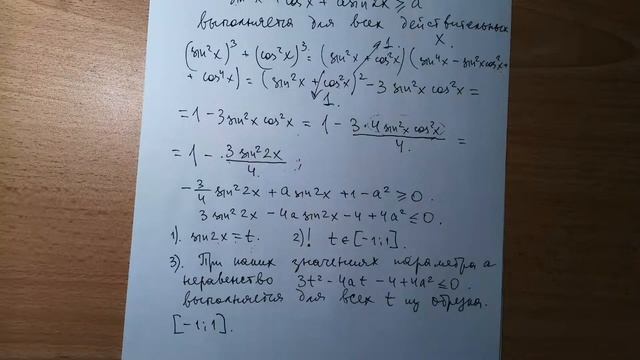 + cos x + a sin2x ≥ a
выполняется для всех действительных
x.
(sin²x)³ + (cos²x)³ = (sin²x + cos²x)(sin⁴x − sin²x cos²x +
1.
+ cos⁴x) = (sin²x + cos²x)² − 3 sin²x cos²x =
1.
= 1 − 3 sin²x cos²x = 1 − 3·4 sin²x cos²x / 4. =
= 1 − 3 sin²2x / 4. ;
− 3/4 sin²2x + a sin2x + 1 − a² ≥ 0.
3 sin²2x − 4a sin2x − 4 + 4a² ≤ 0.
1). sin2x = t. 2)! t ∈ [−1; 1].
3). При каких значениях параметра a
неравенство 3t² − 4at − 4 + 4a² ≤ 0.
выполняется для всех t из отрезка.
[−1; 1].